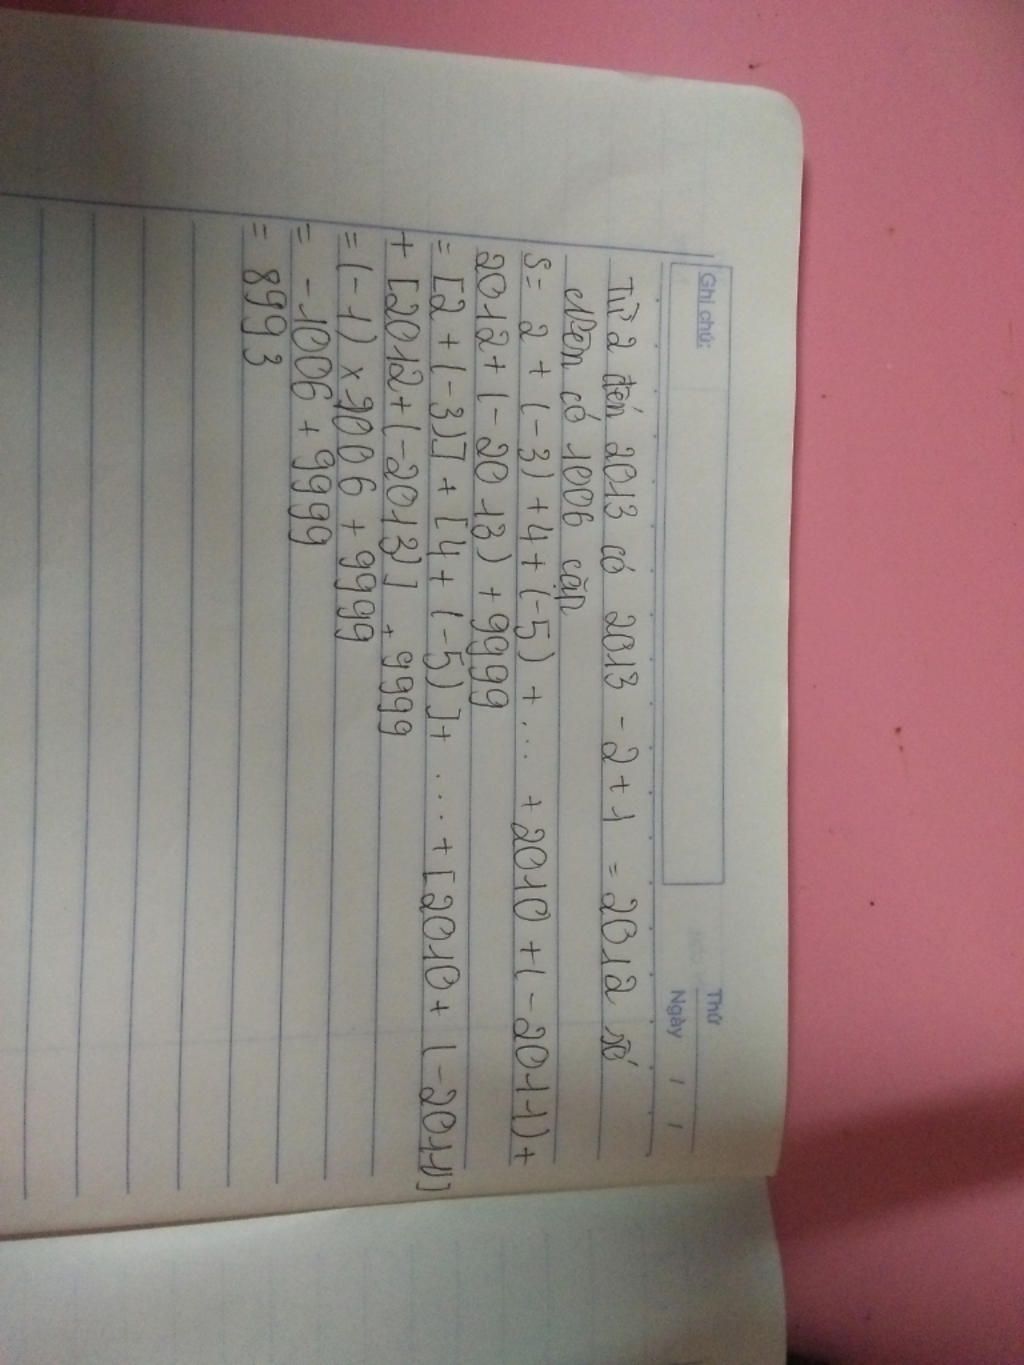 Ghi chú:
Thứ
Ngày / /
Từ 2 đến 2013 có 2013 - 2 + 1 = 2012 số
Nên có 1006 cặp
S = 2 + (-3) + 4 + (-5) + ... + 2010 + (-2011) +
2012 + (-2013) + 9999
= [2 + (-3)] + [4 + (-5)] + ... + [2010 + (-2011)]
+ [2012 + (-2013)] + 9999
= (-1) x 1006 + 9999
= -1006 + 9999
= 8993